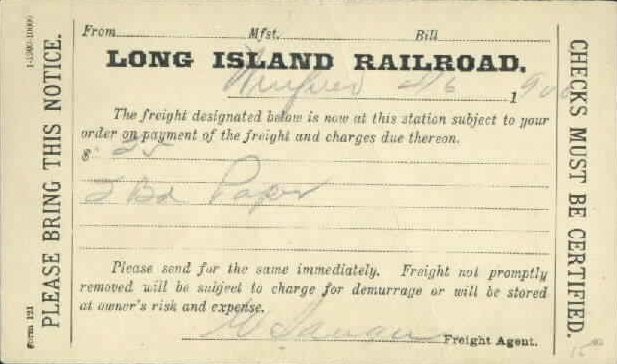 From Mfst. Bill
LONG ISLAND RAILROAD.
2/6 1906
The freight designated below is now at this station subject to your
order on payment of the freight and charges due thereon.
$ .25
2 Bd Paper
Please send for the same immediately. Freight not promptly
removed will be subject to charge for demurrage or will be stored
at owner's risk and expense.
Freight Agent.
PLEASE BRING THIS NOTICE.
Form 121
CHECKS MUST BE CERTIFIED.